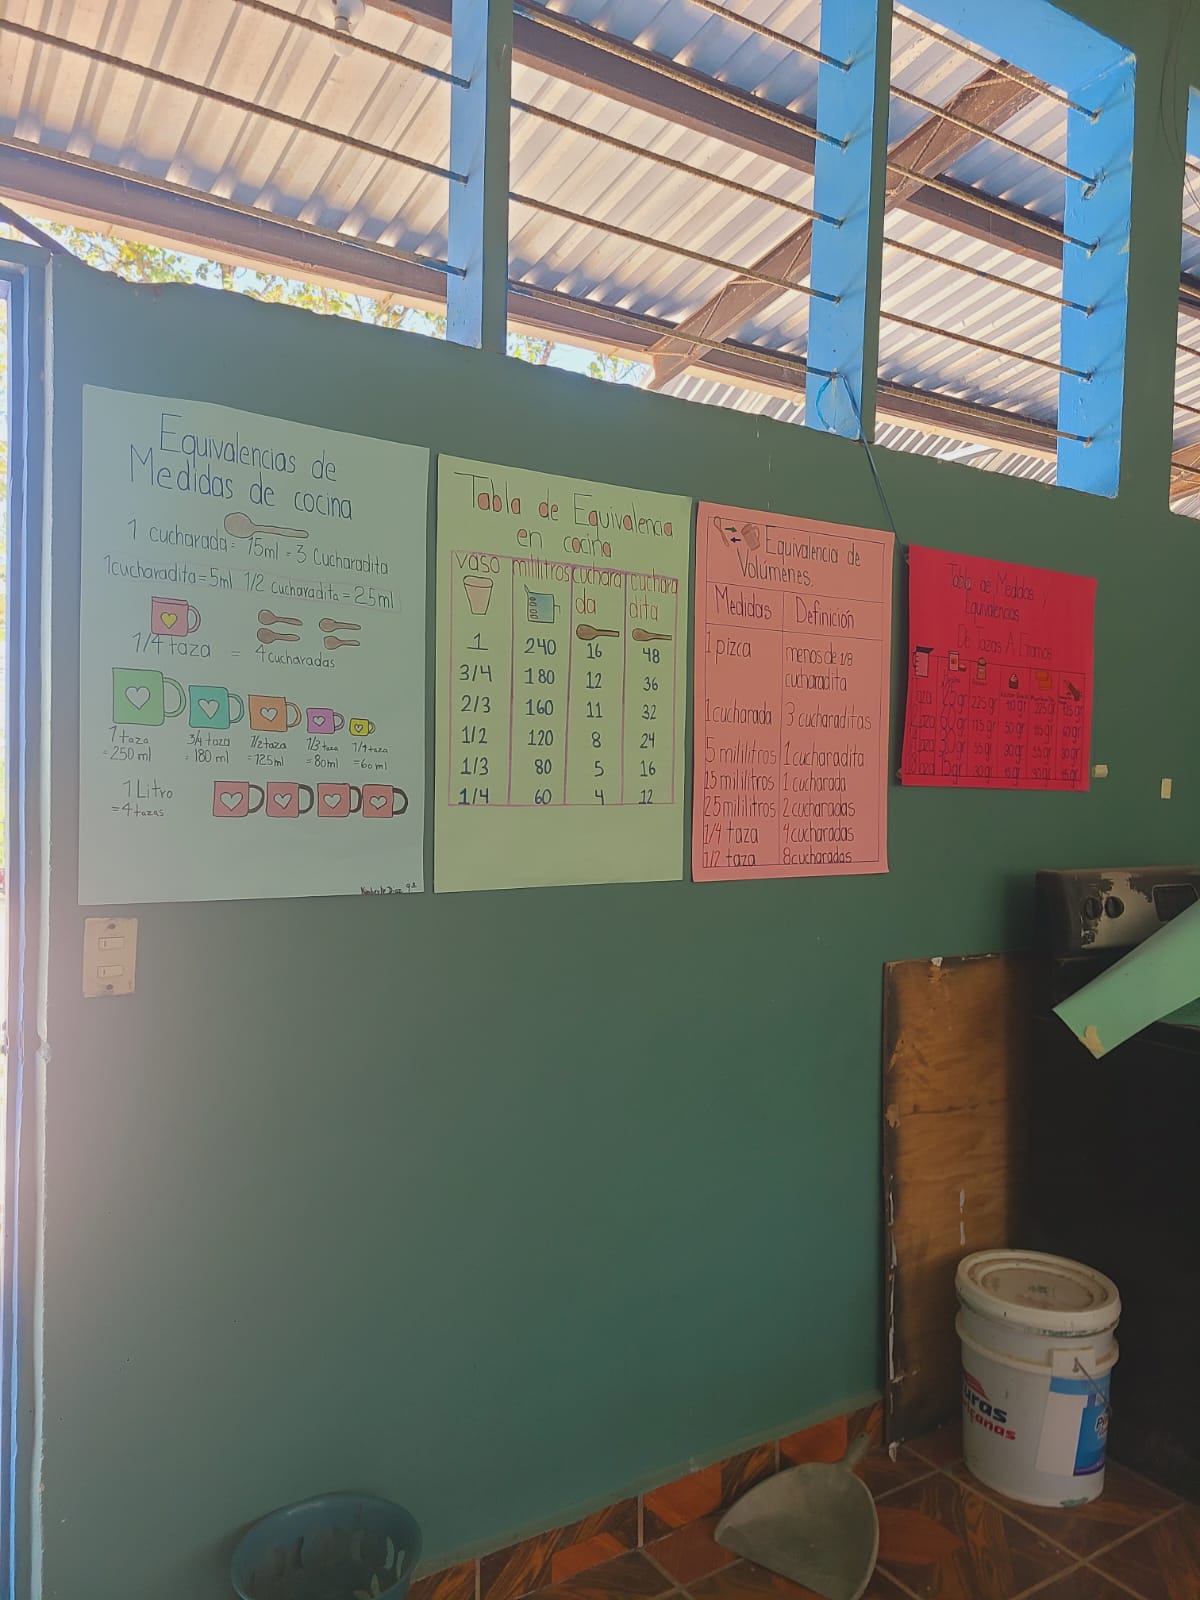 Equivalencias de
Medidas de cocina
1 cucharada = 15ml = 3 Cucharadita
1cucharadita=5ml 1/2 cucharadita = 2.5ml
1/4 taza = 4 cucharadas
1 taza
= 250 ml
3/4 taza
= 180 ml
1/2 taza
= 125ml
1/3 taza
= 80ml
1/4 taza
= 60 ml
1 Litro
= 4 tazas
Tabla de Equivalencia
en cocina
vaso mililitros cuchara
da cuchara
dita
1 240 16 48
3/4 180 12 36
2/3 160 11 32
1/2 120 8 24
1/3 80 5 16
1/4 60 4 12
Equivalencia de
Volúmenes.
Medidas Definición
1 pizca menos de 1/8
cucharadita
1cucharada 3 cucharaditas
5 mililitros 1cucharadita
15 mililitros 1 cucharada
25 mililitros 2 cucharadas
1/4 taza 4cucharadas
1/2 taza 8cucharadas
Tabla de Medidas y
Equivalencias
De Tazas A Gramos
225 gr
115 gr
55 gr
30 gr
uras
icanas